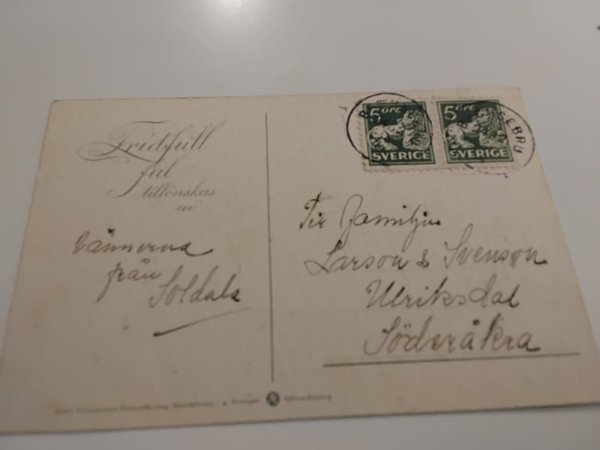 Fridfull
jul
tillönskas
av
Vännerna
från
Soldala
5 ÖRE
SVERIGE
5 ÖRE
SVERIGE
EBRO
Till Familjen
Larson & Svenson
Ulriksdal
Söderåkra